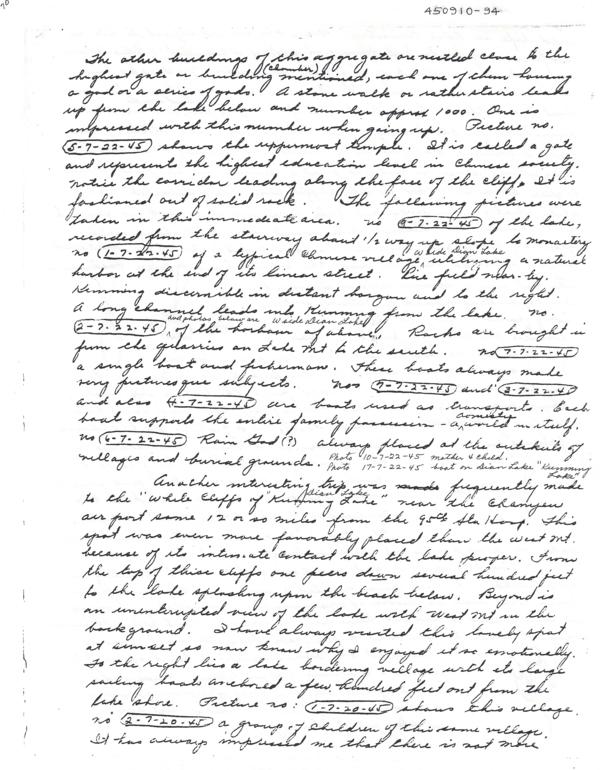 450910-94
The other buildings of this aggregate are nestled close to the
highest gate or building (chamber) mentioned, each one of them having
a god or a series of gods. A stone walk or rather stairs leads
up from the lake below and number approx 1000. One is
impressed with this number when going up. Picture no.
5-7-22-45 shows the uppermost temple. It is called a gate
and represents the highest education level in Chinese society.
Notice the corridor leading along the face of the cliff. It is
fashioned out of solid rock. The following pictures were
taken in this immediate area. no 8-7-22-45 of the lake,
recorded from the stairway about 1/2 way up slope to monastery
no 1-7-22-45 of a typical Chinese village, W side Dian Lake utilizing a natural
harbor at the end of its linear street. field near-by.
Kunming discernible in distant horizon and to the right.
A long channel leads into Kunming from the lake. no.
2-7-22-45, and photos below are W side Dian Lake of the harbour of above. Rocks are brought in
from the quarries on Lake Mt to the south. no 7-7-22-45
a single boat and fisherman. These boats always made
very picturesque subjects. nos 9-7-22-45 and 3-7-22-45
and also 4-7-22-45 are boats used as transports. Each
boat supports the entire family possession - a domestic world in itself.
no 6-7-22-45 Rain God (?) always placed at the outskirts of
villages and burial grounds. Photo 10-7-22-45 mother & child.
Photo 17-7-22-45 boat on Dian Lake "Kunming Lake"
Another interesting trip was frequently made
to the "White Cliffs of "Kunming Lake" Dian Lake near the
air port some 12 or so miles from the 95th Sta Hosp. This
spot was even more favorably placed than the West Mt.
because of its intimate contact with the lake proper. From
the top of these cliffs one peers down several hundred feet
to the lake splashing upon the beach below. Beyond is
an uninterrupted view of the lake with West Mt in the
background. I have always visited this lovely spot
at sunset so now know why I enjoyed it so emotionally.
To the right lies a lake bordering village with its large
sailing boats anchored a few hundred feet out from the
lake shore. Picture no: 1-7-20-45 shows this village.
no 2-7-20-45 a group of children of this same village.
It has always impressed me that there is not more